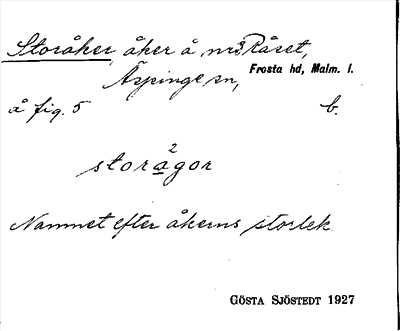 Storåker, åker å nr 3 Råset,
Äspinge sn, Frosta hd, Malm. l.
å fig. 5 b.
2
storågor
Namnet efter åkerns storlek
GÖSTA SJÖSTEDT 1927